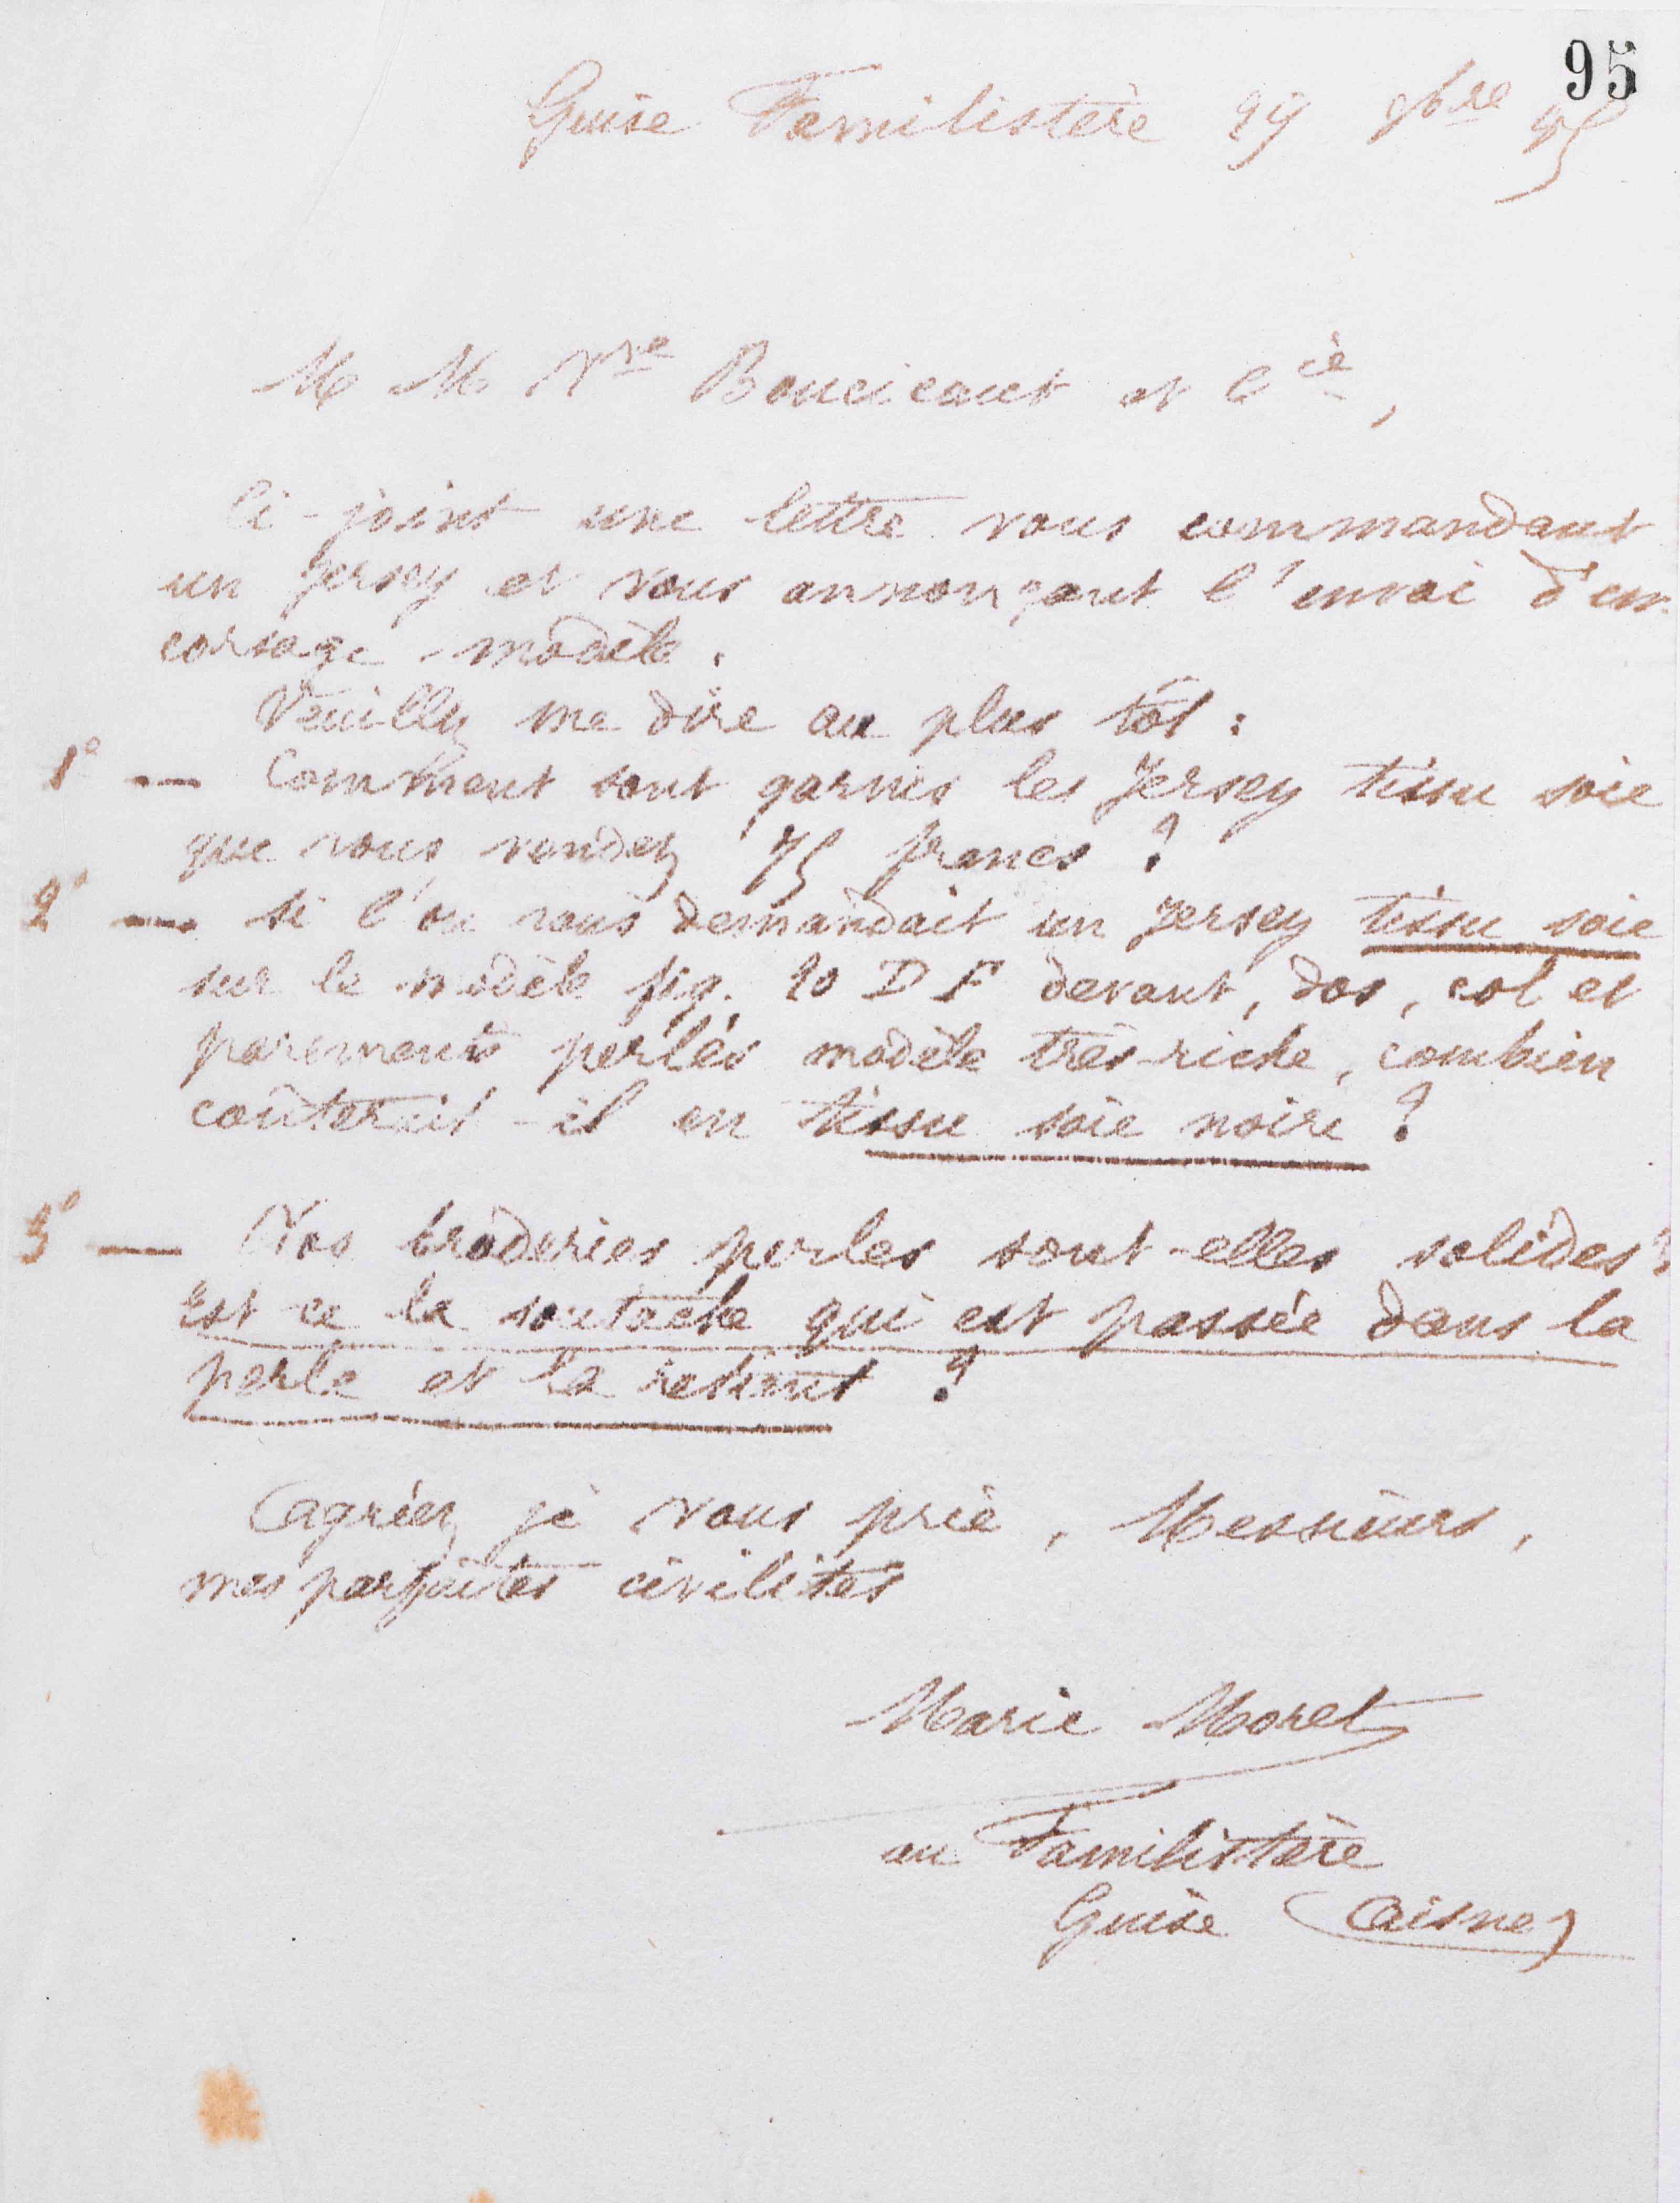 95
Guise Familistère 9bre
M M Vve Boucicaut et Cie,
Ci-joint une lettre vous commandant
un Jersey et vous annonçant l'envoi d'un
corsage-modèle.
Veuillez me dire au plus tôt :
1° — Comment sont garnis les Jersey tissu soie
que vous vendez 75 francs ?
2° — Si l'on vous demandait un Jersey tissu soie
sur le modèle fig. 20 D F devant, dos, col et
parements perlés modèle très-riche, combien
coûterait-il en tissu soie noire ?
3° — Vos broderies perles sont-elles solides ?
Est-ce la soutache qui est passée dans la
perle et la retient ?
Agréez je vous prie, Messieurs,
mes parfaites civilités
Marie Moret
au Familistère
Guise (Aisne)